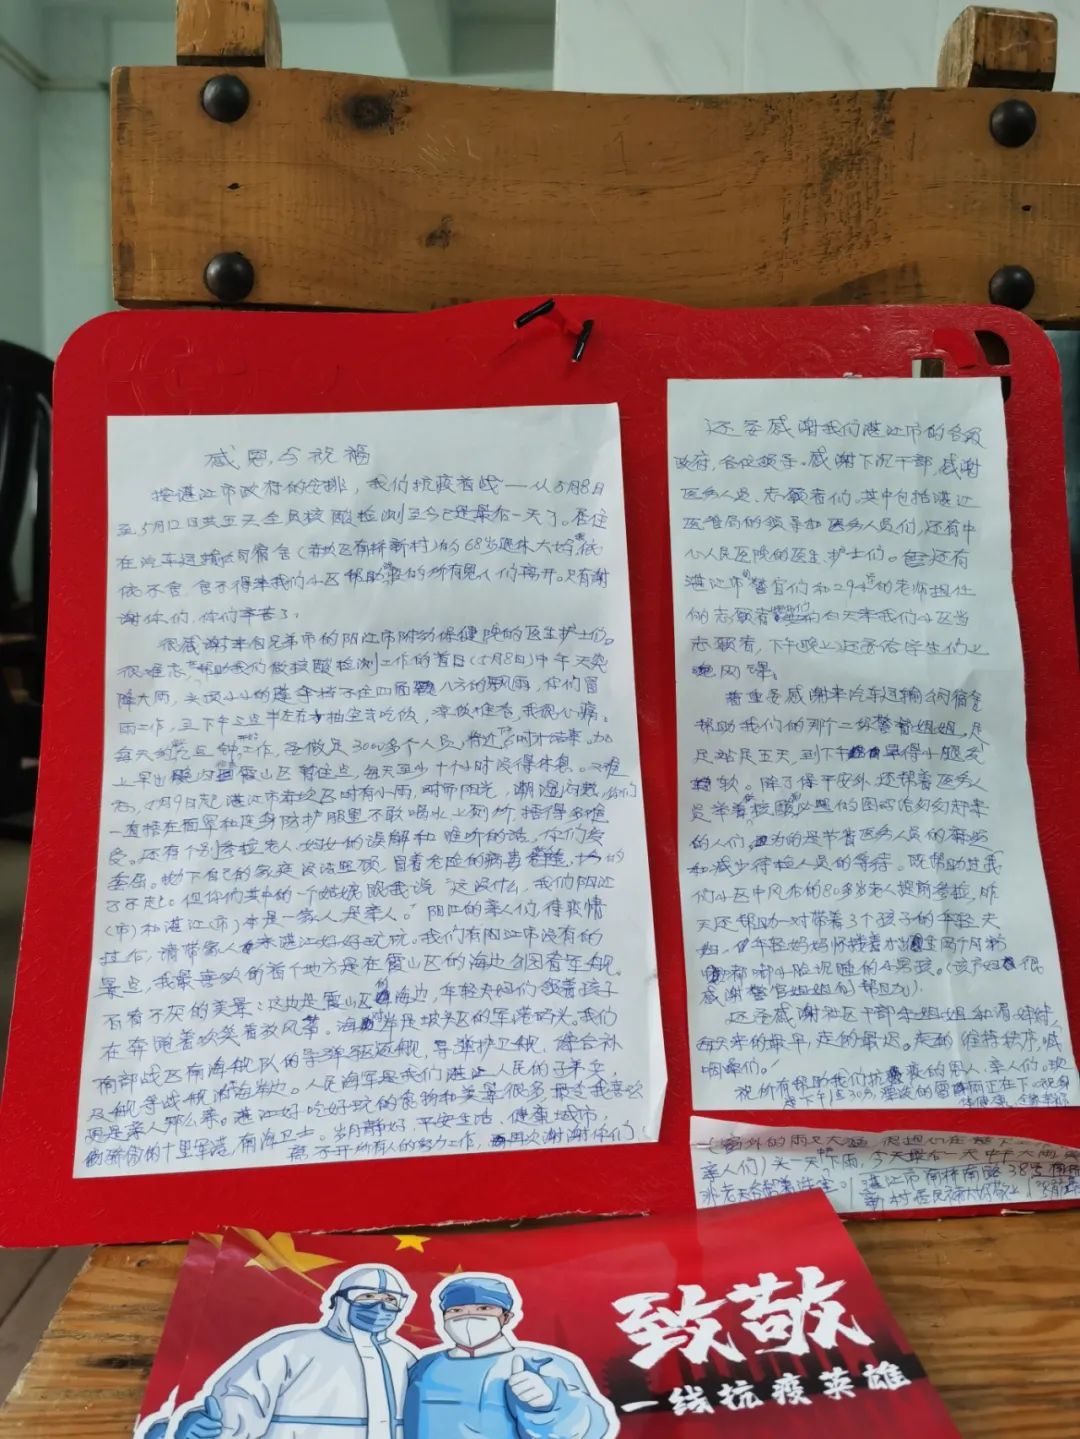 感恩与祝福
按湛江市政府的安排，我们抗疫首战——从5月8日
至5月12日共五天全员核酸检测至今已是最后一天了。居住
在汽车运输公司宿舍(赤坎区南桥新村)的68岁退休大妈依
依不舍，舍不得来我们小区帮助的所有恩人们离开。只有谢
谢你们，你们辛苦了。
很感谢来自兄弟市的阳江市附幼保健院的医生护士们。
很难忘，帮助我们做核酸检测工作的首日(5月8日)中午天突
降大雨，头顶小小的蓬伞挡不住四面八方的飘风雨，你们冒
雨工作，至下午三点半左右才抽空去吃饭，深
每天站工作，要做足3000多个人员，将近时才结束。加
上早出霞山区暂住点，每天至少十个小时没得休息。又难
忘，5月9日起湛江市赤坎区时有小雨，时而阳光，潮湿闷热，你们
一直捂在面罩和连身防护服里不敢喝水上厕所，捂得多难
受。还有个别老人的误解和难听的话，你们受
委屈。抛下自己的家庭没法照顾，冒着危险的病毒
了不起。但你们其中的一个姑娘跟我说"这没什么，我们阳江
(市)和湛江(市)本是一家人是亲人。"阳江的亲人们，待疫情
过后，请带家人来湛江好好玩玩。我们有阳江市没有的
景点，我最喜欢的首个地方是在霞山区的海边公园看军舰。
百看不厌的美景：这边是霞山区海边，年轻夫妇们领着孩子
在奔跑着欢笑着放风筝。海对岸是坡头区的军港码头。我们
南部战区南海舰队的导弹驱逐舰、导弹护卫舰、综合补
及舰等战舰停满海岸边。人民海军是我们湛江人民的子弟兵，
更是亲人那么亲。湛江好吃好玩的食物和美景很多，最是我喜欢
的骄傲的十里军港，南海卫士。岁月静好，平安生活、健康城市，
离不开所有人的努力工作，再次谢谢你们！
还要感谢我们湛江市的各级
政府，各位领导。感谢下沉干部，感谢
医务人员、志愿者们。其中包括湛江
医管局的领导和医务人员们，还有中
心人民医院的医生、护士们。还有
湛江市警官们和29中的老师担任
的志愿者们白天来我们小区当
志愿者，下午(晚上)还要给学生们上
网课。
着重要感谢来汽车运输公司宿舍
帮助我们的那个二级警督姐姐，足
足站足五天，到下午累得小腿发
软。除了保平安外，还帮着医务人
员举着核酸必照的图码给匆匆赶来
的人们，为的是节省医务人员的
和减少待检人员的等待。既帮助过我
们小区中风后的80多岁老人提前多检，昨
天还帮助一对带着3个孩子的年轻夫
妇，年轻妈妈怀抱着才出生两个月粉
嘟嘟小脸泥睡的小男孩。(该产妇很
感谢警官姐姐们帮助)。
还要感谢社区干部李姐姐和眉妹妹，
每天来的最早，走的最迟。 维持秩序，喊
咽嗓们！
祝所有帮助我们抗疫的恩人、亲人们。现
是下午1点30分，滂沱的雷雨正在下。祝
(窗外的雨又大
亲人们)头一天下雨，今天最后一天中午大雨
湛江市南桥南路38号南桥
新村居民
致敬
一线抗疫英雄